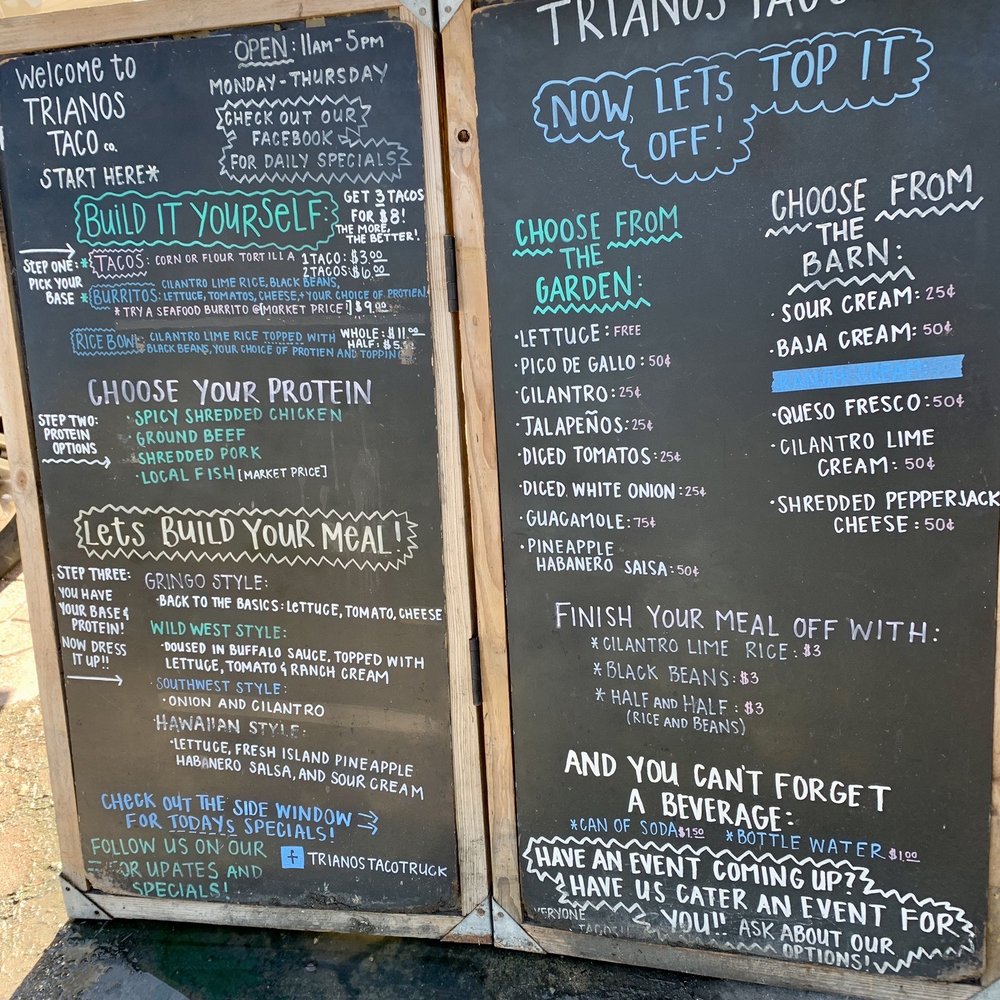 Welcome to
TRIANOS
TACO co.
START HERE*
OPEN: 11AM-5PM
MONDAY-THURSDAY
CHECK OUT OUR
FACEBOOK
FOR DAILY SPECIALS
BUILD IT YOURSELF:
GET 3 TACOS
FOR $8!
THE MORE,
THE BETTER!
STEP ONE:
PICK YOUR
BASE
*TACOS: CORN OR FLOUR TORTILLA 1 TACO: $3.00
2 TACOS: $6.00
*BURRITOS: CILANTRO LIME RICE, BLACK BEANS,
LETTUCE, TOMATOS, CHEESE, + YOUR CHOICE OF PROTIEN
*TRY A SEAFOOD BURRITO @[MARKET PRICE!] $9.00
RICE BOWL CILANTRO LIME RICE TOPPED WITH
BLACK BEANS, YOUR CHOICE OF PROTIEN AND TOPPING
WHOLE: $11.00
HALF:
CHOOSE YOUR PROTEIN
STEP TWO:
PROTEIN
OPTIONS
·SPICY SHREDDED CHICKEN
·GROUND BEEF
·SHREDDED PORK
·LOCAL FISH [MARKET PRICE]
LETS BUILD YOUR MEAL!
STEP THREE:
YOU HAVE
YOUR BASE &
PROTEIN!
NOW DRESS
IT UP!!
GRINGO STYLE:
·BACK TO THE BASICS: LETTUCE, TOMATO, CHEESE
WILD WEST STYLE:
·DOUSED IN BUFFALO SAUCE, TOPPED WITH
LETTUCE, TOMATO & RANCH CREAM
SOUTHWEST STYLE:
·ONION AND CILANTRO
HAWAIIAN STYLE:
·LETTUCE, FRESH ISLAND PINEAPPLE
HABANERO SALSA, AND SOUR CREAM
CHECK OUT THE SIDE WINDOW
FOR TODAYS SPECIALS!
FOLLOW US ON OUR
FOR UPATES AND
SPECIALS!
f TRIANOSTACOTRUCK
TRIANOS TACO
NOW, LETS TOP IT
OFF!
CHOOSE FROM
THE
GARDEN:
·LETTUCE: FREE
·PICO DE GALLO: 50¢
·CILANTRO: 25¢
·JALAPEÑOS: 25¢
·DICED TOMATOS: 25¢
·DICED WHITE ONION: 25¢
·GUACAMOLE: 75¢
·PINEAPPLE
HABANERO SALSA: 50¢
CHOOSE FROM
THE
BARN:
·SOUR CREAM: 25¢
·BAJA CREAM: 50¢
·QUESO FRESCO: 50¢
·CILANTRO LIME
CREAM: 50¢
·SHREDDED PEPPERJACK
CHEESE: 50¢
FINISH YOUR MEAL OFF WITH:
*CILANTRO LIME RICE: $3
*BLACK BEANS: $3
*HALF AND HALF: $3
(RICE AND BEANS)
AND YOU CAN'T FORGET
A BEVERAGE:
*CAN OF SODA $1.50 *BOTTLE WATER $1.00
HAVE AN EVENT COMING UP??
HAVE US CATER AN EVENT FOR
YOU!! ASK ABOUT OUR
OPTIONS!
TACOS!!